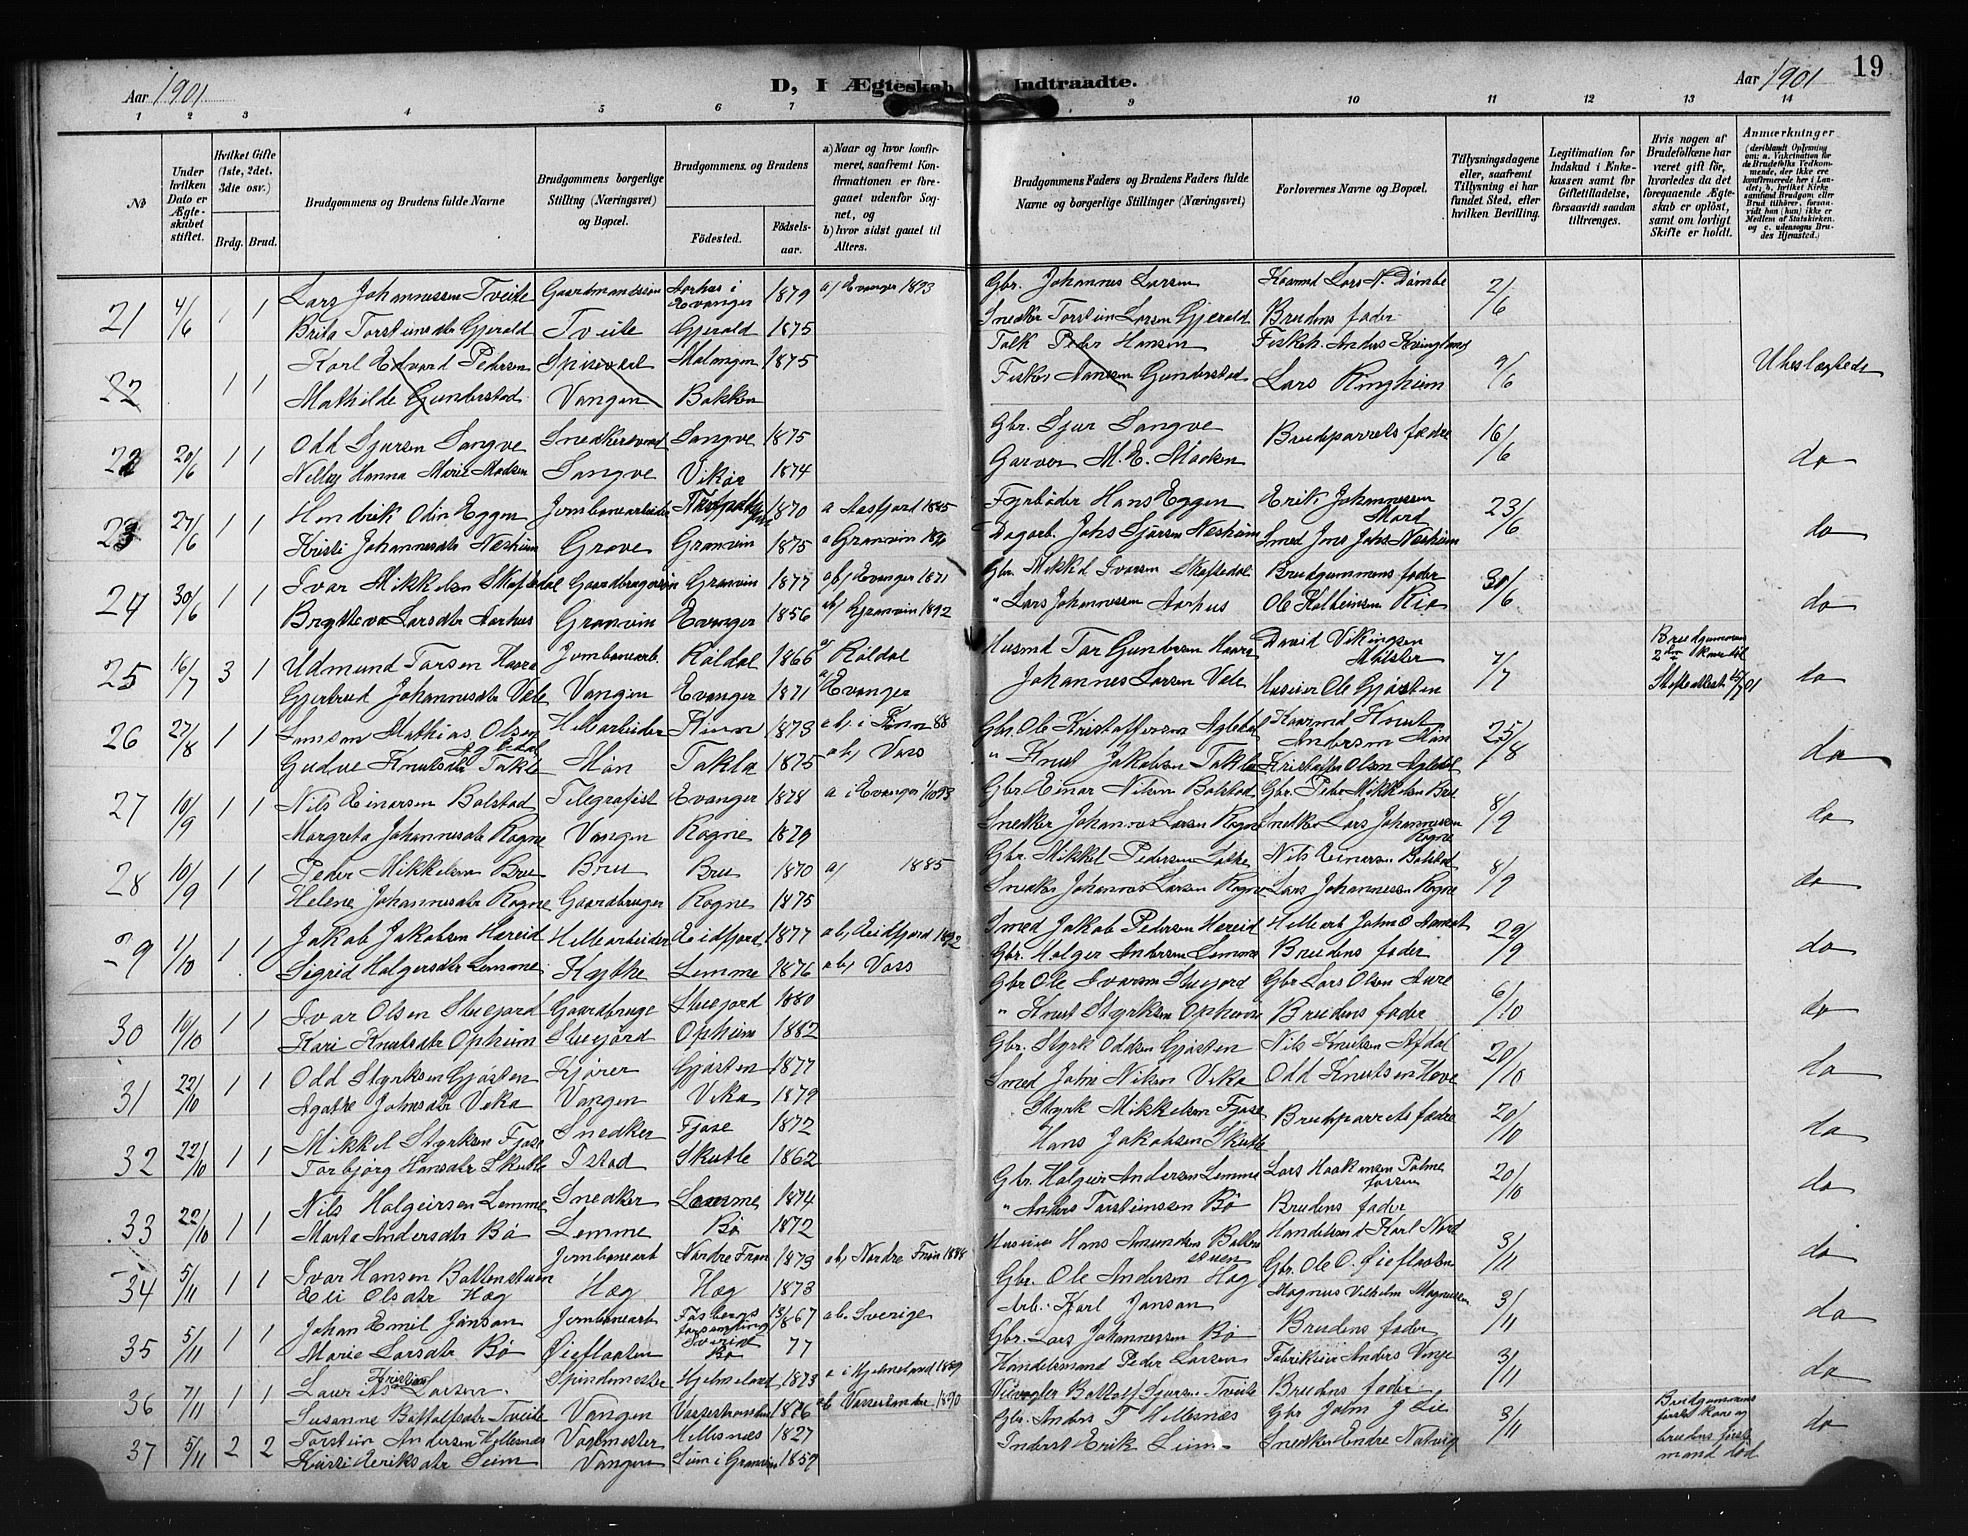 Aar 1901
D, I Ægteskab Indtraadte.
Aar 1901
19
1 2 3 4 5 6 7 9 10 11 12 13 14
No
Under hvilken Dato er Ægteskabet stiftet.
Hvilket Gifte (1ste, 2det. 3die osv.)
Brdg. Brud.
Brudgommens og Brudens fulde Navne
Brudgommens borgerlige Stilling (Næringsvei) og Bopæl.
Brudgommens og Brudens
Fødested.
Fødselsaar.
a) Naar og hvor konfirmeret, saafremt Konfirmationen er foregaaet udenfor Sognet, og
b) hvor sidst gaaet til Alters.
Brudgommens Faders og Brudens Faders fulde Navne og borgerlige Stillinger (Næringsvei)
Forlovernes Navne og Bopæl.
Tillysningsdagene eller, saafremt Tillysning ei har fundet Sted, efter hvilken Bevilling.
Legitimation for Indskud i Enkekassen samt for Giftetilladelse, forsaavidt saadan tiltrænges.
Hvis nogen af Brudefolkene har været gift før, hvorledes da det foregaaende Ægteskab er opløst, samt om lovligt Skifte er holdt.
Anmærkninger
21 4/6 1 1 Lars Johannessen Tveite Gaardmandssøn Aarhus i Evanger 1879 a) Evanger 1893 Gbr. Johannes Larsen Kaarmd Lars N. Dømbe 2/6
Brita Torsteinsdtr Gjerald Tveite Gjerald 1875 Snedker Torstein Larsen Gjerald Brudens fader
22 1 1 Karl Edvard Pedersen Spisevert Malangen 1875 Tolk Peder Hansen Fiskeh. Anders Kvingland 9/6 Ubeslægtede
Mathilde Gunderstad Vangen Bakken Fisker Hansen Gunderstad Lars Ringheim
22 20/6 1 1 Odd Sjursen Sangve Snedkersvend Sangve 1875 Gbr. Sjur Sangve Brudeparrets fædre 16/6 do
Nelly Hanna Marie Madsen Sangve Vikør 1874 Garver M. E. Madsen
23 27/6 1 1 Hendrik Odin Eggen Jernbanearbeider 1870 a Aasfjord 1885 Fyrbøder Hans Eggen Erik Johannessen Mord 23/6 do
Kristi Johannesdtr Nesheim Grove Granvin 1875 a Granvin 1890 Dagarb. Johs Sjursen Nesheim Smed Jens Johs. Nesheim
24 30/6 1 1 Ivar Mikkelsen Skaftedal Gaardbrugersøn Granvin 1877 ab) Evanger 1871 Gbr. Mikkel Ivarsen Skaftedal Brudgommens fader 30/6 do
Brytteva Larsdtr Aarhus Granvin Evanger 1856 ab) Granvin 1892 " Lars Johannessen Aarhus Ole Kolbeinsen Rio
25 16/7 3 1 Udmund Torsen Haara Jernbanearb. Røldal 1866 a) Røldal Husmd Tor Gundersen Haara David Vikingsen Mølster 7/7 Brudgommens 2den kone død do
Gjertrud Johannesdtr Vele Vangen Evanger 1871 a) Evanger Johannes Larsen Vele Huseier Ole Gjøsten Skifteattest
26 27/8 1 1 Samson Mathias Olsen Agledal Hellearbeider Kinn 1873 ab. i Kinn 88 Gbr. Ole Kristoffersen Agledal Kaarmd Knut Andersen Møn 25/8 do
Gudve Knutsdtr Takle Møn Takla 1875 ab) Voss " Knut Jakobsen Takle Kristoffer Olsen Agledal
27 10/9 1 1 Nils Einarsen Bolstad Telegrafist Evanger 1878 a i Evanger 1/10 93 Gbr. Einar Nilsen Bolstad Gbr. Peder Mikkelsen Bru 8/9 do
Margreta Johannesdtr Rogne Vangen Rogne 1879 Snedker Johannes Larsen Rogne Snedker Lars Johannessen Rogne
28 10/9 1 1 Peder Mikkelsen Bru Bru Bru 1870 a) 1885 Gbr. Mikkel Pedersen Løthe Nils Einarsen Bolstad 8/9 do
Helene Johannesdtr Rogne Gaardbruger Rogne 1875 Snedker Johannes Larsen Rogne Lars Johannessen Rogne
29 1/10 1 1 Jakob Jakobsen Hæreid Hellearbeider Eidfjord 1877 ab) Eidfjord 1892 Smed Jakob Pedersen Hereid Hellearb. John O 29/9 do
Sigrid Holgersdtr Lemme Hythe Lemme 1876 ab) Voss Gbr. Holger Andersen Lemme Brudens fader
30 10/10 1 1 Ivar Olsen Stuejord Gaardbruge Stuejord 1880 Gbr Ole Ivarsen Stuejord Gbr Lars Olsen Aure 6/10 do
Kari Knutsdtr Opheim Stuejord Opheim 1882 " Knut Styrksen Opheim Brudens fader
31 22/10 1 1 Odd Styrksen Gjøsten Kjører Gjøsten 1877 Gbr. Styrk Oddsen Gjøsten Nils Knutsen Afdal 20/10 do
Agathe Johnsdtr Veka Vangen Veka 1879 Smed John Nilsen Veka Odd Knutsen Hove
32 22/10 1 1 Mikkel Styrksen Fjose Snedker Fjose 1872 Styrk Mikkelsen Fjose Brudeparrets fædre 20/10 do
Torbjørg Hansdtr Skutle Istad Skutle 1862 Hans Jakobsen Skutle
33 22/10 1 1 Nils Holgeirsen Lemme Snedker Lemme 1874 Gbr. Holgeir Andersen Lemme Lars Haakonsen Palmeforsen 20/10 do
Marta Andersdtr Bø Lemme Bø 1872 " Anders Torsteinssen Bø Brudens fader
34 5/11 1 1 Ivar Hansen Bottenstuen Jernbanearb Nordre Fron 1873 ab) Nordre Fron 1888 Huseier Hans Amunden Bottenstuen Handelsmd Karl Nord 3/11 do
Eli Olsdtr Hæg Hæg Hæg 1873 Gbr. Ole Andersen Hæg Gbr. Ole O. Øieflaaten
35 5/11 1 1 Johan Emil Jansan Jernbanearb Fosbergs forsamling Sverige 1867 ab. Sverige Arb. Karl Jansan Magnus Vilhelm Magnussen 3/11 do
Marie Larsdtr Bø Øieflaaten Bø 77 Gbr. Lars Johannessen Bø Brudens fader
36 7/11 1 1 Laurits Kristian Larsen Spindemester Hjelmeland 1873 a i Hjelmeland 1889 Handelsmand Peder Larsen Fabrikeier Anders Vinje 3/11 do
Susanne Bottolfsdtr Tveite Vangen Vossestranden 1876 ab Vossestranden 1890 Bottolf Sjursen Tveite Brudens fader
37 5/11 2 2 Torstein Andersen Hellesnæs Vogtmester Hellesnæs 1827 Gbr. Anders T Hellesnæs Gbr John J Lie 3/11 Brudgommens første kone og brudens første mand død do
Kristi Eriksdtr Seim Vangen Seim i Granvin 1859 Inderst Erik Seim Snedker Endre Natvig